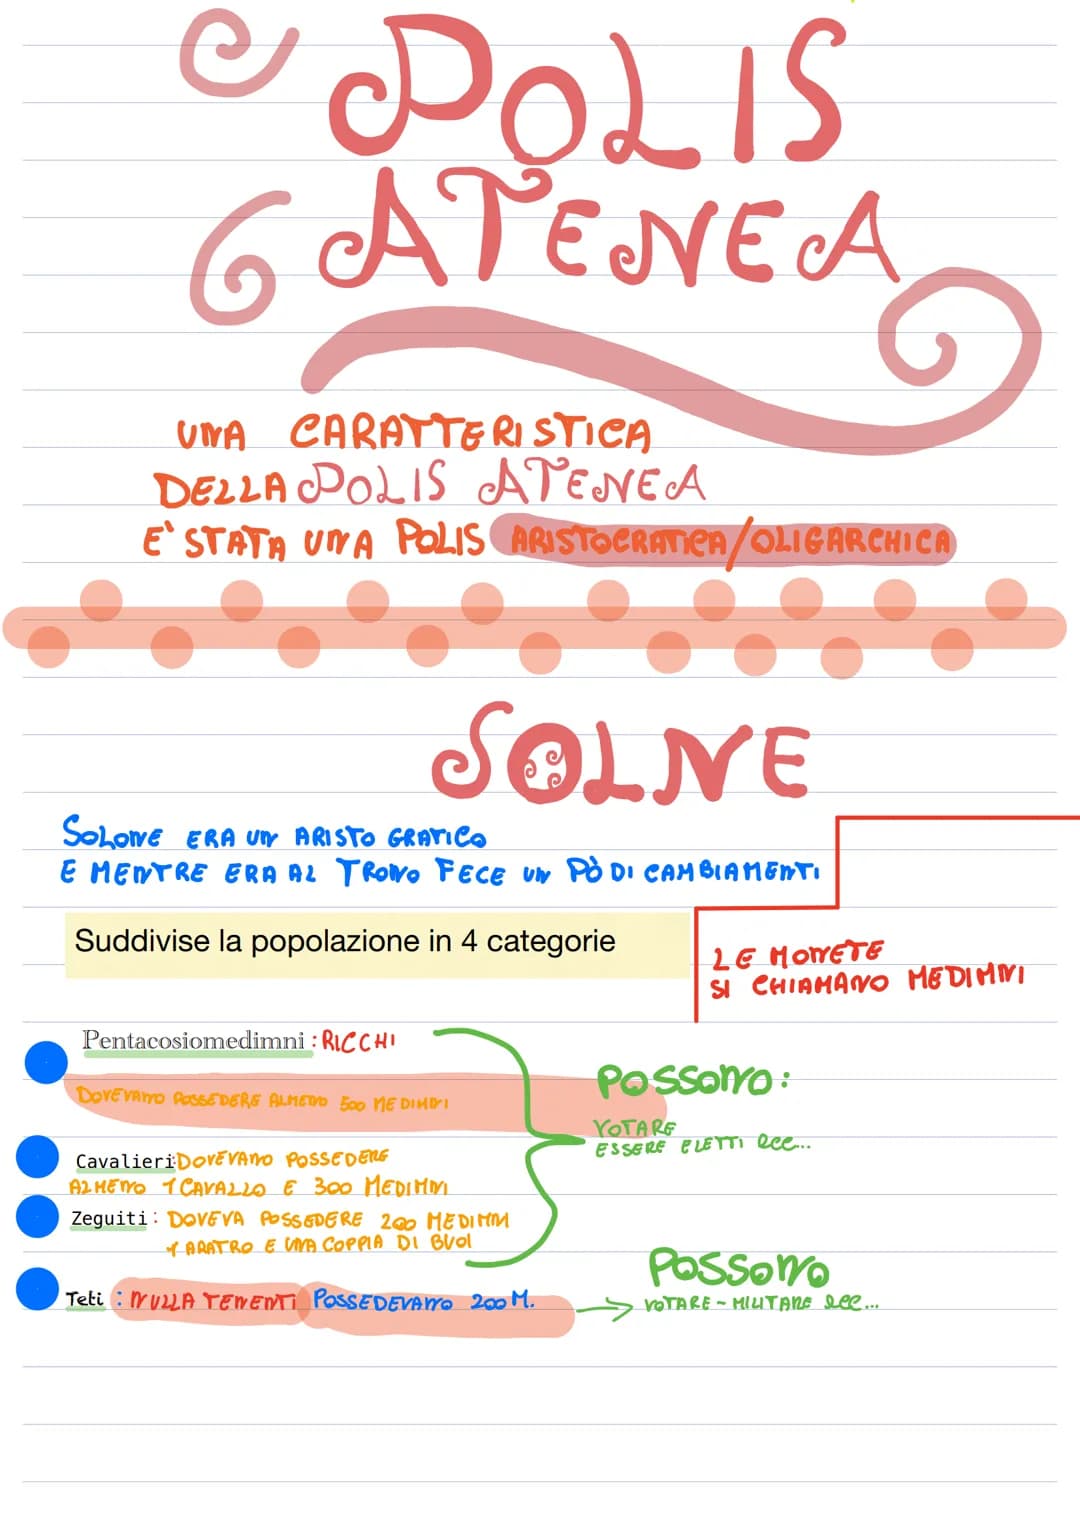 POLIS
ATENEA
UNA CARATTERISTICA
DELLA POLIS ATENEA
E' STATA UNA POLIS ARISTOCRATICA/OLIGARCHICA
SOLNE
SOLONE ERA UN ARISTO GRATICO
E MENTRE ERA AL TRONO FECE UN PÒ DI CAMBIAMENTI
Suddivise la popolazione in 4 categorie
LE MONETE
SI CHIAMANO MEDIMNI
Pentacosiomedimni : RICCHI
DOVEVANO POSSEDERE ALMENO 500 MEDIMNI
POSSONO:
VOTARE
ESSERE ELETTI ecc...
Cavalieri: DOVEVANO POSSEDERE
ALMENO 1 CAVALLO E 300 MEDIMNI
Zeguiti: DOVEVA POSSEDERE 200 MEDIMNI
1 ARATRO E UNA COPPIA DI BUOI
Teti : NULLA TENENTI POSSEDEVANO 200 M.
POSSONO
VOTARE - MILITARE ecc...